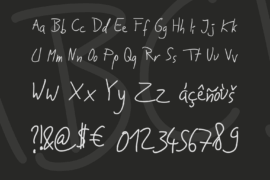 Aa Bb Cc Dd Ee Ff Gg Hh Ii Jj Kk
Ll Mm Nn Oo Pp Qq Rr Ss Tt Uu Vv
Ww Xx Yy Zz áçêñöùš
?!&@$€ 0123456789